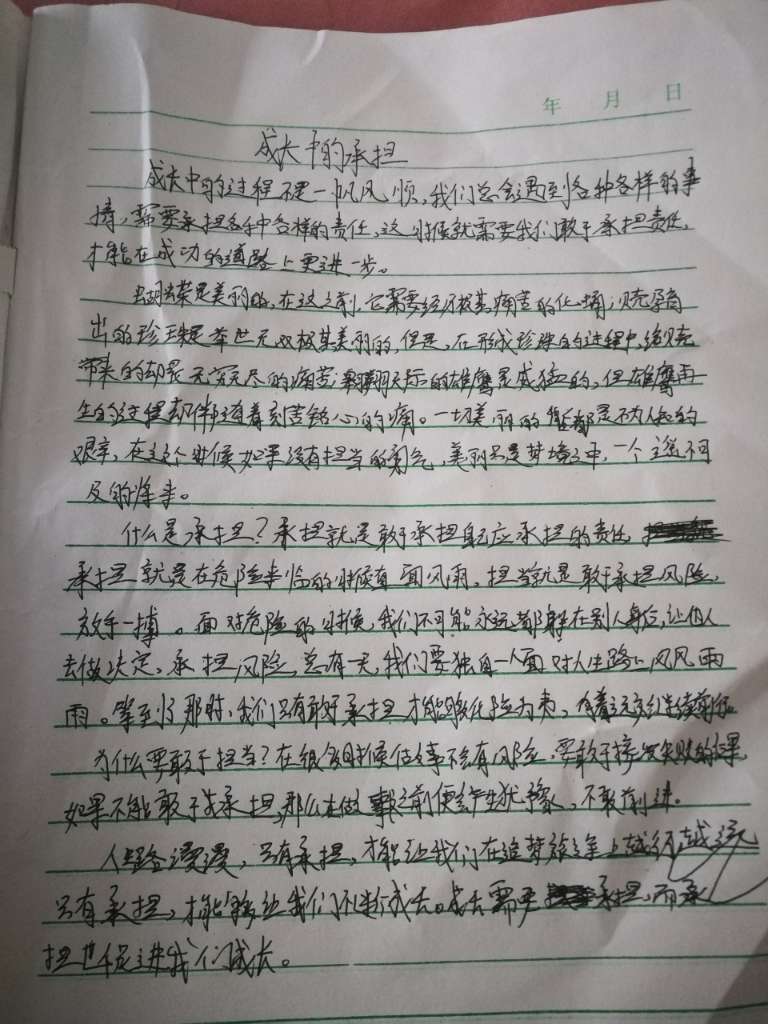 年 月 日
成长中的承担
成长中的过程不是一帆风顺,我们总会遇到各种各样的事
情,需要承担各种各样的责任,这时候就需要我们敢于承担责任,
才能在成功的道路上更进一步。
蝴蝶是美丽的,在这之前,它需要经历极其痛苦的化蛹;贝壳孕育
出的珍珠是举世无双极其美丽的,但是,在形成珍珠的过程中,给贝壳
带来的却是无穷无尽的痛苦;翱翔天际的雄鹰是威猛的,但雄鹰再
生的过程却伴随着刻苦铭心的痛。一切美丽的背都是不为人知的
艰辛,在这个时候如果没有担当的勇气,美丽只是梦境之中,一个遥不可
及的将来。
什么是承担?承担就是敢于承担自己应承担的责任
承担就是在危险来临的时候直面风雨,担当就是敢于承担风险,
放手一搏。面对危险的时候,我们不可能永远都躲在别人身后,让他人
去做决定,承担风险,总有一天,我们要独自一人面对人生路上风风雨
雨。等到了那时,我们只有敢于承担才能够化险为夷,
为什么要敢于担当?在很多时候做事不会有风险,要敢于接受失败的结果,
如果不能敢于去承担,那么在做事之前便会产生犹豫,不敢前进。
人生路漫漫,只有承担,才能让我们在追梦旅途上越行越远
只有承担,才能够让我们不断成长。成长需要承担,而承
担也促进我们成长。